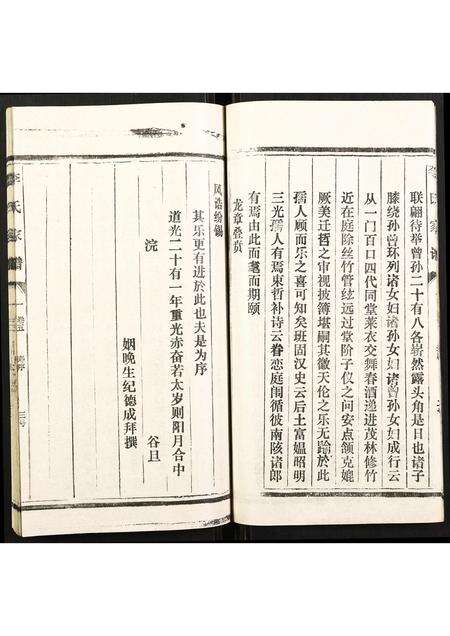 联翩待举曾孙二十有八各崭然露头角是日也诸子
膝绕孙曾环列诸女妇诸孙女妇诸曾孙女妇成行云
从一门百口四代同堂莱衣交舞春酒递进茂林修竹
近在庭除丝竹管絃远过堂阶子仪之问安点颔克媲
厥美迁哲之审视披簿堪嗣其徽天伦之乐无踰於此
孺人顾而乐之喜可知矣班固汉史云后土富媪昭明
三光孺人有焉束晳补诗云眷恋庭闱循彼南陔诸郎
有焉由此而耄而期颐
龙章叠贲
凤诰纷锡
其乐更有进於此也夫是为序
道光二十有一年重光赤奋若太岁则阳月合中
浣
谷旦
姻晚生纪德成拜撰
李氏家谱